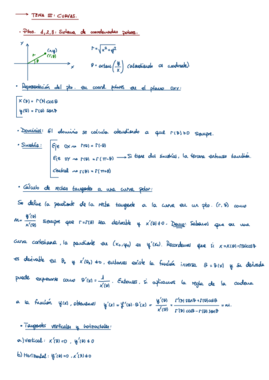 → TEMA III: CURVAS.
· Ptos 1, 2, 3: Sistema de coordenadas polares.
y
(x,y)
r(θ)
θ
x
r = √(x² + y²)
θ = arctan (y/x) (atendiendo al cuadrante)
· Representación del pto. en coord. polares en el plano OXY:
x(θ) = r(θ) cosθ
y(θ) = r(θ) senθ
· Dominio: El dominio se calcula atendiendo a que r(θ) ≥ 0 siempre.
· Simetría:
Eje OX → r(θ) = r(-θ)
Eje OY → r(θ) = r(π-θ) → Si tiene dos simetrías, la tercera también
Central → r(θ) = r(π+θ)
· Cálculo de rectas tangente a una curva polar:
Se define la pendiente de la recta tangente a la curva en un pto. (r, θ) como
m = y'(θ)/x'(θ) siempre que r = r(θ) sea derivable y x'(θ) ≠ 0. Demo: Sabemos que en una
curva cartesiana, la pendiente en (x₀, y₀) es y'(x). Recordemos que si x = r(θ) cosθ
es derivable en θ₀ y x'(θ₀) ≠ 0, entonces existe la función inversa θ = θ(x) y la derivada
puede expresarse como θ'(x) = 1/x'(θ). Entonces, si aplicamos la regla de la cadena
a la función y(x), obtenemos y'(x) = y'(θ)·θ'(x) = y'(θ)/x'(θ) = r'(θ) senθ + r(θ) cosθ / r'(θ) cosθ - r(θ) senθ = m.
· Tangentes verticales y horizontales:
a) Vertical: x'(θ) = 0, y'(θ) ≠ 0
b) Horizontal: y'(θ) = 0, x'(θ) ≠ 0